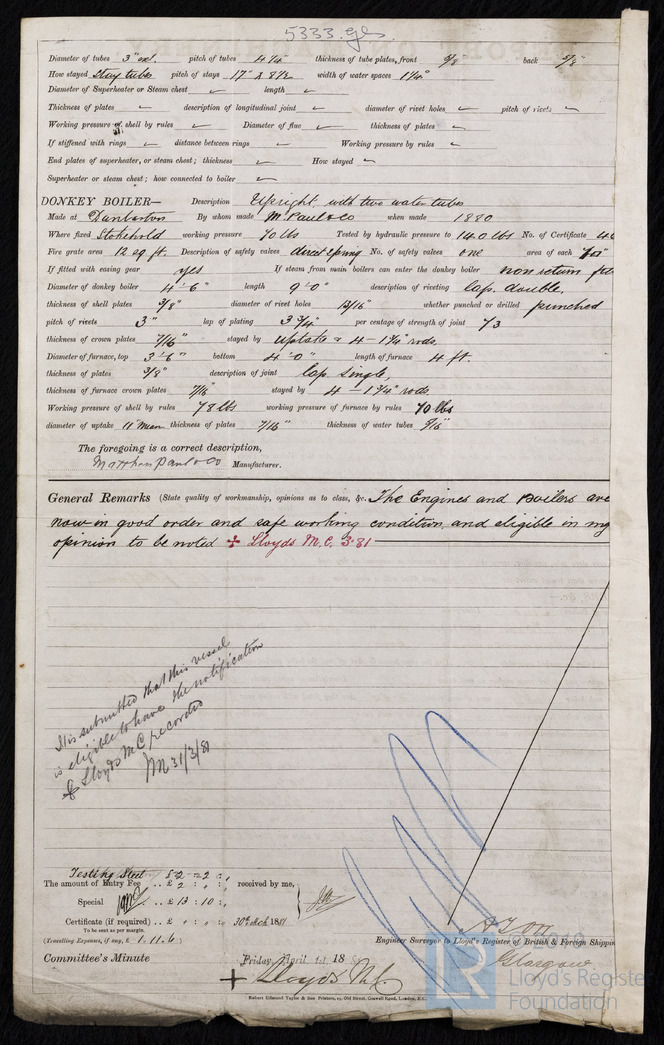 5333 gls
Diameter of tubes 3" ext. pitch of tubes 4 1/4 thickness of tube plates, front 5/8" back 5/8"
How stayed Stay tubes pitch of stays 17" & 8 1/2 width of water spaces 1 1/4"
Diameter of Superheater or Steam chest ✓ length ✓
Thickness of plates ✓ description of longitudinal joint ✓ diameter of rivet holes ✓ pitch of rivets ✓
Working pressure of shell by rules ✓ Diameter of flue ✓ thickness of plates ✓
If stiffened with rings ✓ distance between rings ✓ Working pressure by rules ✓
End plates of superheater, or steam chest; thickness ✓ How stayed ✓
Superheater or steam chest; how connected to boiler ✓
DONKEY BOILER— Description Upright with two water tubes
Made at Dunbarton By whom made M. Paul & Co when made 1880
Where fixed Stokehold working pressure 70 lbs Tested by hydraulic pressure to 140 lbs No. of Certificate
Fire grate area 12 sq ft. Description of safety valves direct spring No. of safety valves one area of each
If fitted with easing gear yes If steam from main boilers can enter the donkey boiler non return
Diameter of donkey boiler 4'-6" length 9'-0" description of riveting lap. double.
thickness of shell plates 3/8" diameter of rivet holes 13/16" whether punched or drilled punched
pitch of rivets 3" lap of plating 3 3/4" per centage of strength of joint 73
thickness of crown plates 7/16" stayed by uptake & 4 - 1 1/4" rods.
Diameter of furnace, top 3'-6" bottom 4'-0" length of furnace 4 ft.
thickness of plates 3/8" description of joint lap single.
thickness of furnace crown plates 7/16" stayed by 4 - 1 1/4" rods.
Working pressure of shell by rules 78 lbs working pressure of furnace by rules 70 lbs
diameter of uptake 11" mean thickness of plates 7/16" thickness of water tubes 5/16"
The foregoing is a correct description,
Matthew Paul & Co Manufacturer.
General Remarks (State quality of workmanship, opinions as to class, &c. The Engines and Boilers are
now in good order and safe working condition, and eligible in my
opinion to be noted ✠ Lloyds M.C. 3.81
It is submitted that this vessel
is eligible to have the notification
✠ Lloyds M C recorded
31/3/81
Testing Steel £2 = 2 = ,
The amount of Entry Fee .. £ 2 : , : , received by me,
Special .. £ 13 : 10 : ,
Certificate (if required) .. £ 0 : , : , 30th Mch 1881
To be sent as per margin.
(Travelling Expenses, if any, £ 1.11.6)
Engineer Surveyor to Lloyd's Register of British & Foreign Shippin
Glasgow
Committee's Minute Friday April 1st 18
✠ Lloyds M.C.
Robert Edmund Taylor & Son Printers, 19, Old Street, Goswell Road, London, E.C.
© 2019
LR
Lloyd's Registe
Foundation